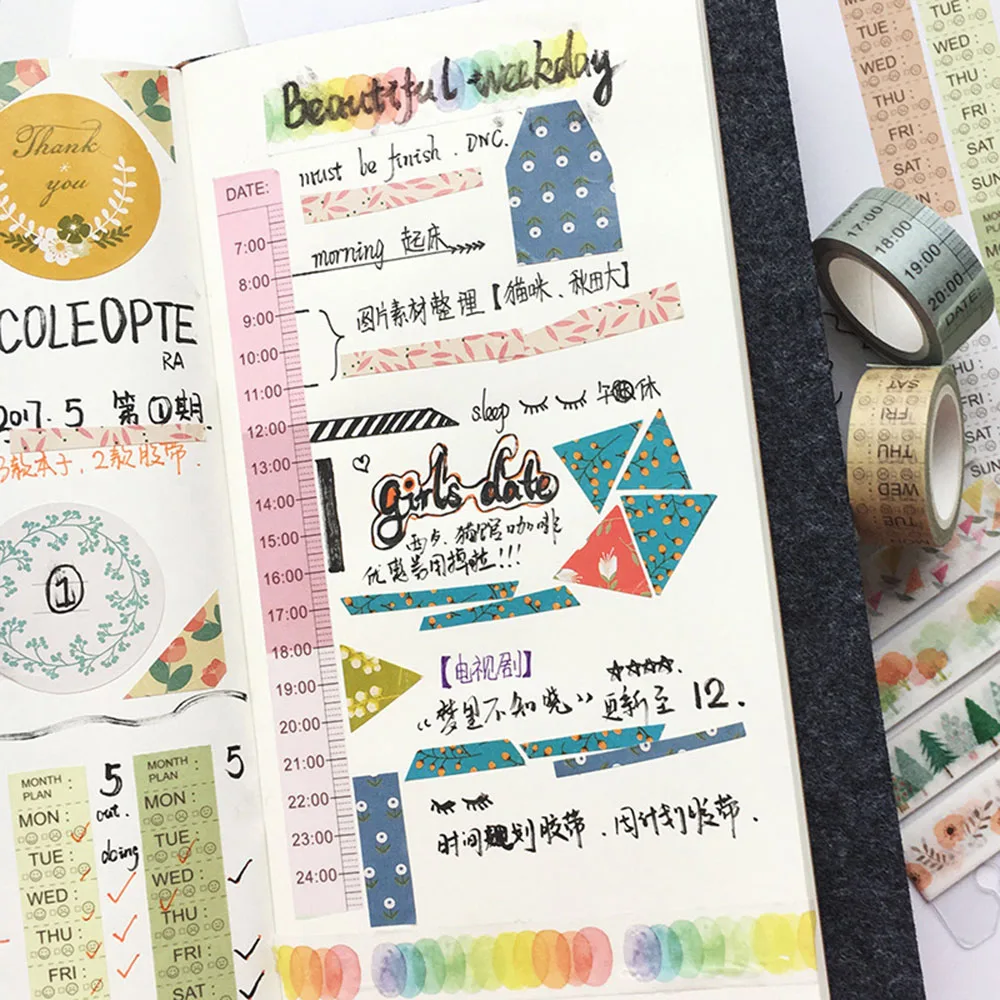 Thank
you
COLEOPTE
RA
2017.5 第①期
3款本子，2款胶带.
1
MONTH
PLAN
MON:
TUE:
WED:
THU:
FRI
5
out.
doing
MONTH
PLAN
MON:
TUE:
WED
THU:
FRI:
SAT:
5
Beautiful weekday
must be finish. DNC.
DATE:
7:00
8:00
9:00
10:00
11:00
12:00
13:00
14:00
15:00
16:00
17:00
18:00
19:00
20:00
21:00
22:00
23:00
24:00
morning 起床
图片素材整理【猫咪、秋田犬】
sleep 午休
girls date
西点.猫馆咖啡
优惠券用掉啦!!!
【电视剧】
《梦里不知晓》更新至 12.
时间规划胶带.周计划胶带.
MON:
TUE:
WED:
THU:
FRI:
SAT:
SUN:
TUE:
WED:
THU:
FRI:
SAT:
SUN:
MONTH
PLAN
17:00
18:00
19:00
20:00
DATE:
SAT:
FRI:
THU:
WED
TUE:
MON
THU:
FRI:
SAT:
SUN: